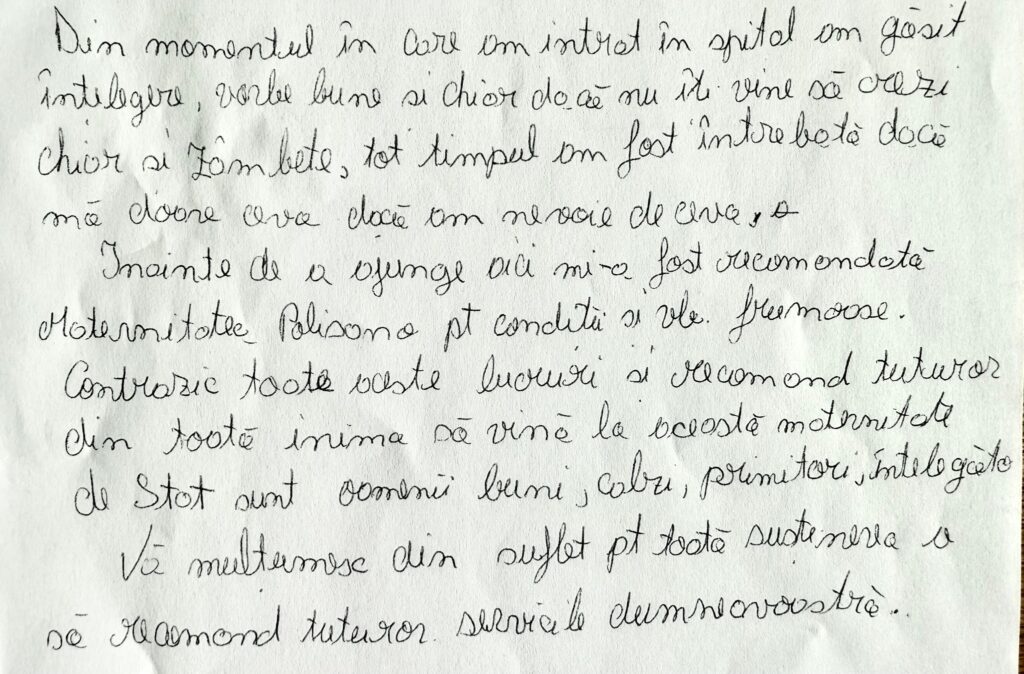 Din momentul în care am intrat în spital am găsit
întelegere, vorbe bune si chiar dacă nu îti vine să crezi
chiar si Zâmbete, tot timpul am fost întrebată dacă
mă doare ceva dacă am nevoie de ceva,
Inainte de a ajunge aici mi-a fost recomandată
Maternitatea Polisano pt conditii si vb. frumoase.
Contrazic toate aceste lucruri si recomand tuturor
din toată inima să vină la această maternitate
de Stat sunt oamenii buni, calzi, primitori, întelegăto
Vă multumesc din suflet pt toată sustinerea o
să recomand tuturor serviciile dumneavoastră..